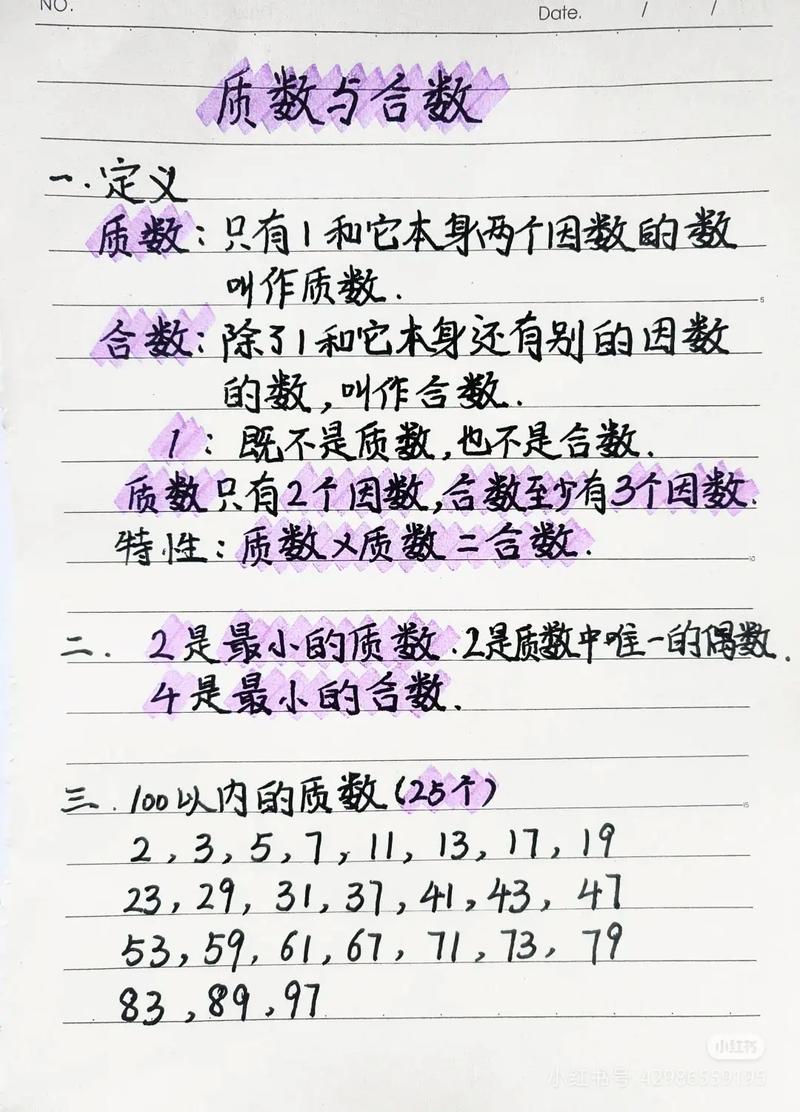 NO.
Date. / /
质数与合数
一.定义
质数:只有1和它本身两个因数的数
叫作质数.
合数:除了1和它本身还有别的因数
的数,叫作合数.
1:既不是质数,也不是合数.
质数只有2个因数,合数至少有3个因数.
特性:质数×质数=合数.
二. 2是最小的质数.2是质数中唯一的偶数.
4是最小的合数.
三.100以内的质数(25个)
2,3,5,7,11,13,17,19
23,29,31,37,41,43,47
53,59,61,67,71,73,79
83,89,97
5
10
15
小红书
小红书号 42986559195